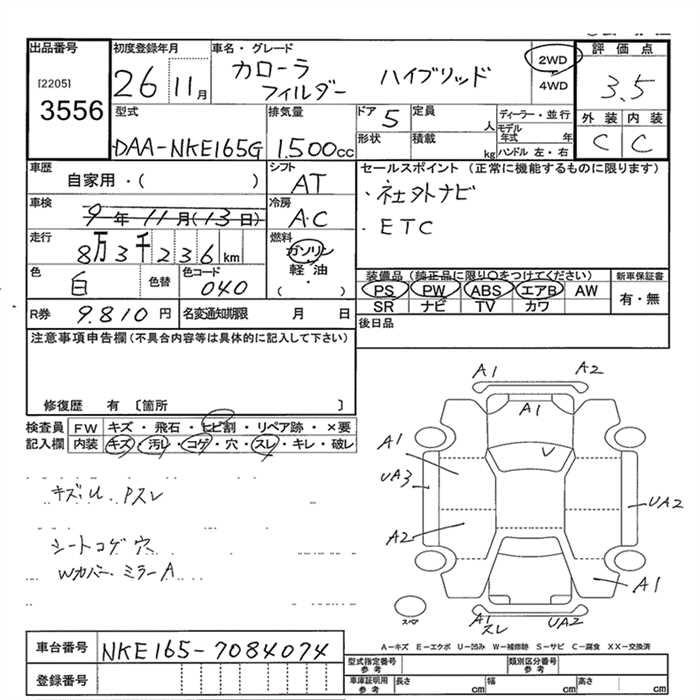 出品番号 初度登録年月 車名・グレード 評価点
[2205] 3556 26 11月 カローラ フィルダー ハイブリッド 2WD 4WD 3.5
型式 排気量 ドア 5 定員 人 ディーラー・並行 外装 内装
DAA-NKE165G 1.500cc 形状 積載 kg モデル年式 年 ハンドル 左・右 C C
車歴 自家用・( ) シフト AT セールスポイント(正常に機能するものに限ります)
車検 9年11月(13日) 冷房 A.C ・社外ナビ
走行 8万3千236km 燃料 ガソリン 軽油 ・ ( ) ・ETC
色 白 色替 色コード 040 装備品(純正品に限り○をつけてください) 新車保証書
PS PW ABS エアB AW 有・無
SR ナビ TV カワ
R券 9.810円 名変通知期限 月 日 後日品
注意事項申告欄(不具合内容等は具体的に記入して下さい)
修復歴 有 〔箇所 〕
検査員 FW キズ・飛石・ヒビ割・リペア跡・×要
記入欄 内装 キズ・汚レ・コゲ・穴・スレ・キレ・破レ
キズU Pスレ
シートコゲ穴
Wカバー・ミラーA
A1 A2
A1
A1 V
UA3 UA2
A2
A1
A1 スレ UA2
スペア
A-キズ E-エクボ U-凹み W-補修跡 S-サビ C-腐食 XX-交換済
車台番号 NKE165-7084074 型式指定番号 参考 類別区分番号 参考
登録番号 車庫証明用 参考 長さ cm 幅 cm 高さ cm